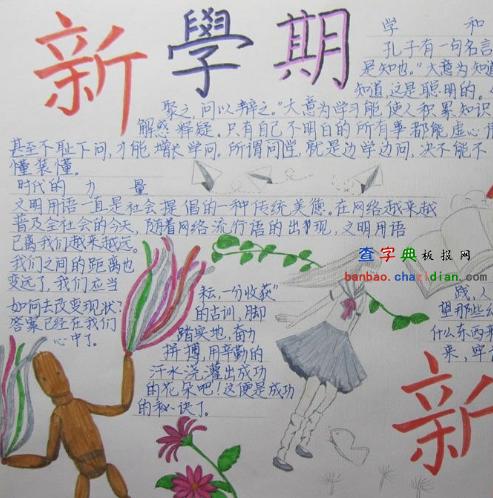 新學期
学 和
孔子有一句名言
是知也。"大意为知道
知道,这是聪明的。
聚之,问以辩之。"大意为学习能使人积累知识
解惑释疑。只有自己不明白的所有事都能虚心请
甚至不耻下问,才能增长学问。所谓问学,就是边学边问,决不能不
懂装懂。
时代的 力 量
文明用语一直是社会提倡的一种传统美德。在网络越来越
普及全社会的今天,随着网络流行语的出现,文明用语
已离我们越来越远。
我们之间的距离也
变远了,我们应当
如何去改变现状?
答案已经在我们
心中了。
查字典板报网
banbao.chazidian.com
耘,一分收获"
的古训,脚
踏实地,奋力
拼搏,用辛勤的
汗水浇灌出成功
的花朵吧!这便是成功
的秘诀了。
践,人
望那些
什么东西
来,学
新